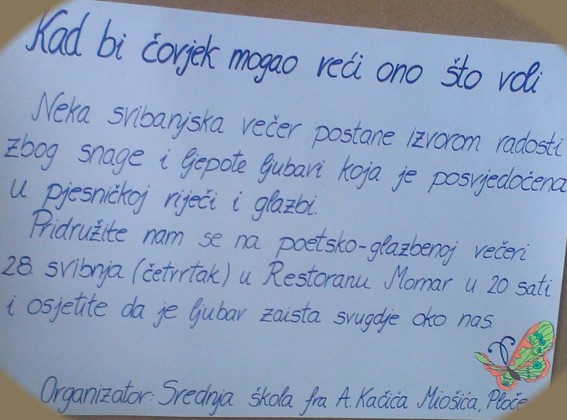 Kad bi čovjek mogao reći ono što voli
Neka svibanjska večer postane izvorom radosti
zbog snage i ljepote ljubavi koja je posvjedočena
u pjesničkoj riječi i glazbi.
Pridružite nam se na poetsko-glazbenoj večeri
28. svibnja (četvrtak) u Restoranu Mornar u 20 sati
i osjetite da je ljubav zaista svugdje oko nas.
Organizator: Srednja škola fra A. Kačića Miošića, Ploče